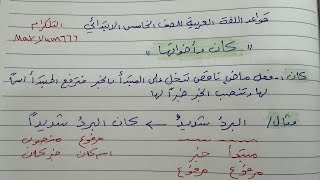 قواعد اللغة العربية للصف الخامس الابتدائي
التلكرام
Markum777
" كان وأخواتها "
كان :- فعل ماضٍ ناقص تدخل على المبتدأ والخبر فترفع المبتدأ اسماً
لها وتنصب الخبر خبراً لها
مثال / البردُ شديدٌ ← كان البردُ شديداً
مبتدأ خبر اسم كان خبر كان
مرفوع مرفوع مرفوع منصوب